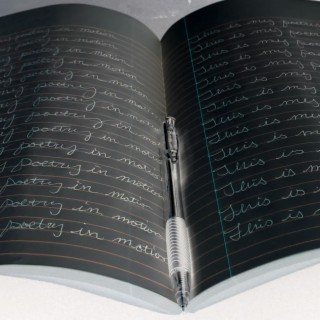 poetry in motion
poetry in motion
poetry in motion
poetry in motion
poetry in motion
poetry in motion
poetry in motion
poetry in motion
poetry in motion
poetry in motion
poetry in motion
poetry in motion
poetry in motion
This is my
This is my
This is my
This is my
This is my
This is my
This is my
This is my
This is my
This is my
This is
This is
This is